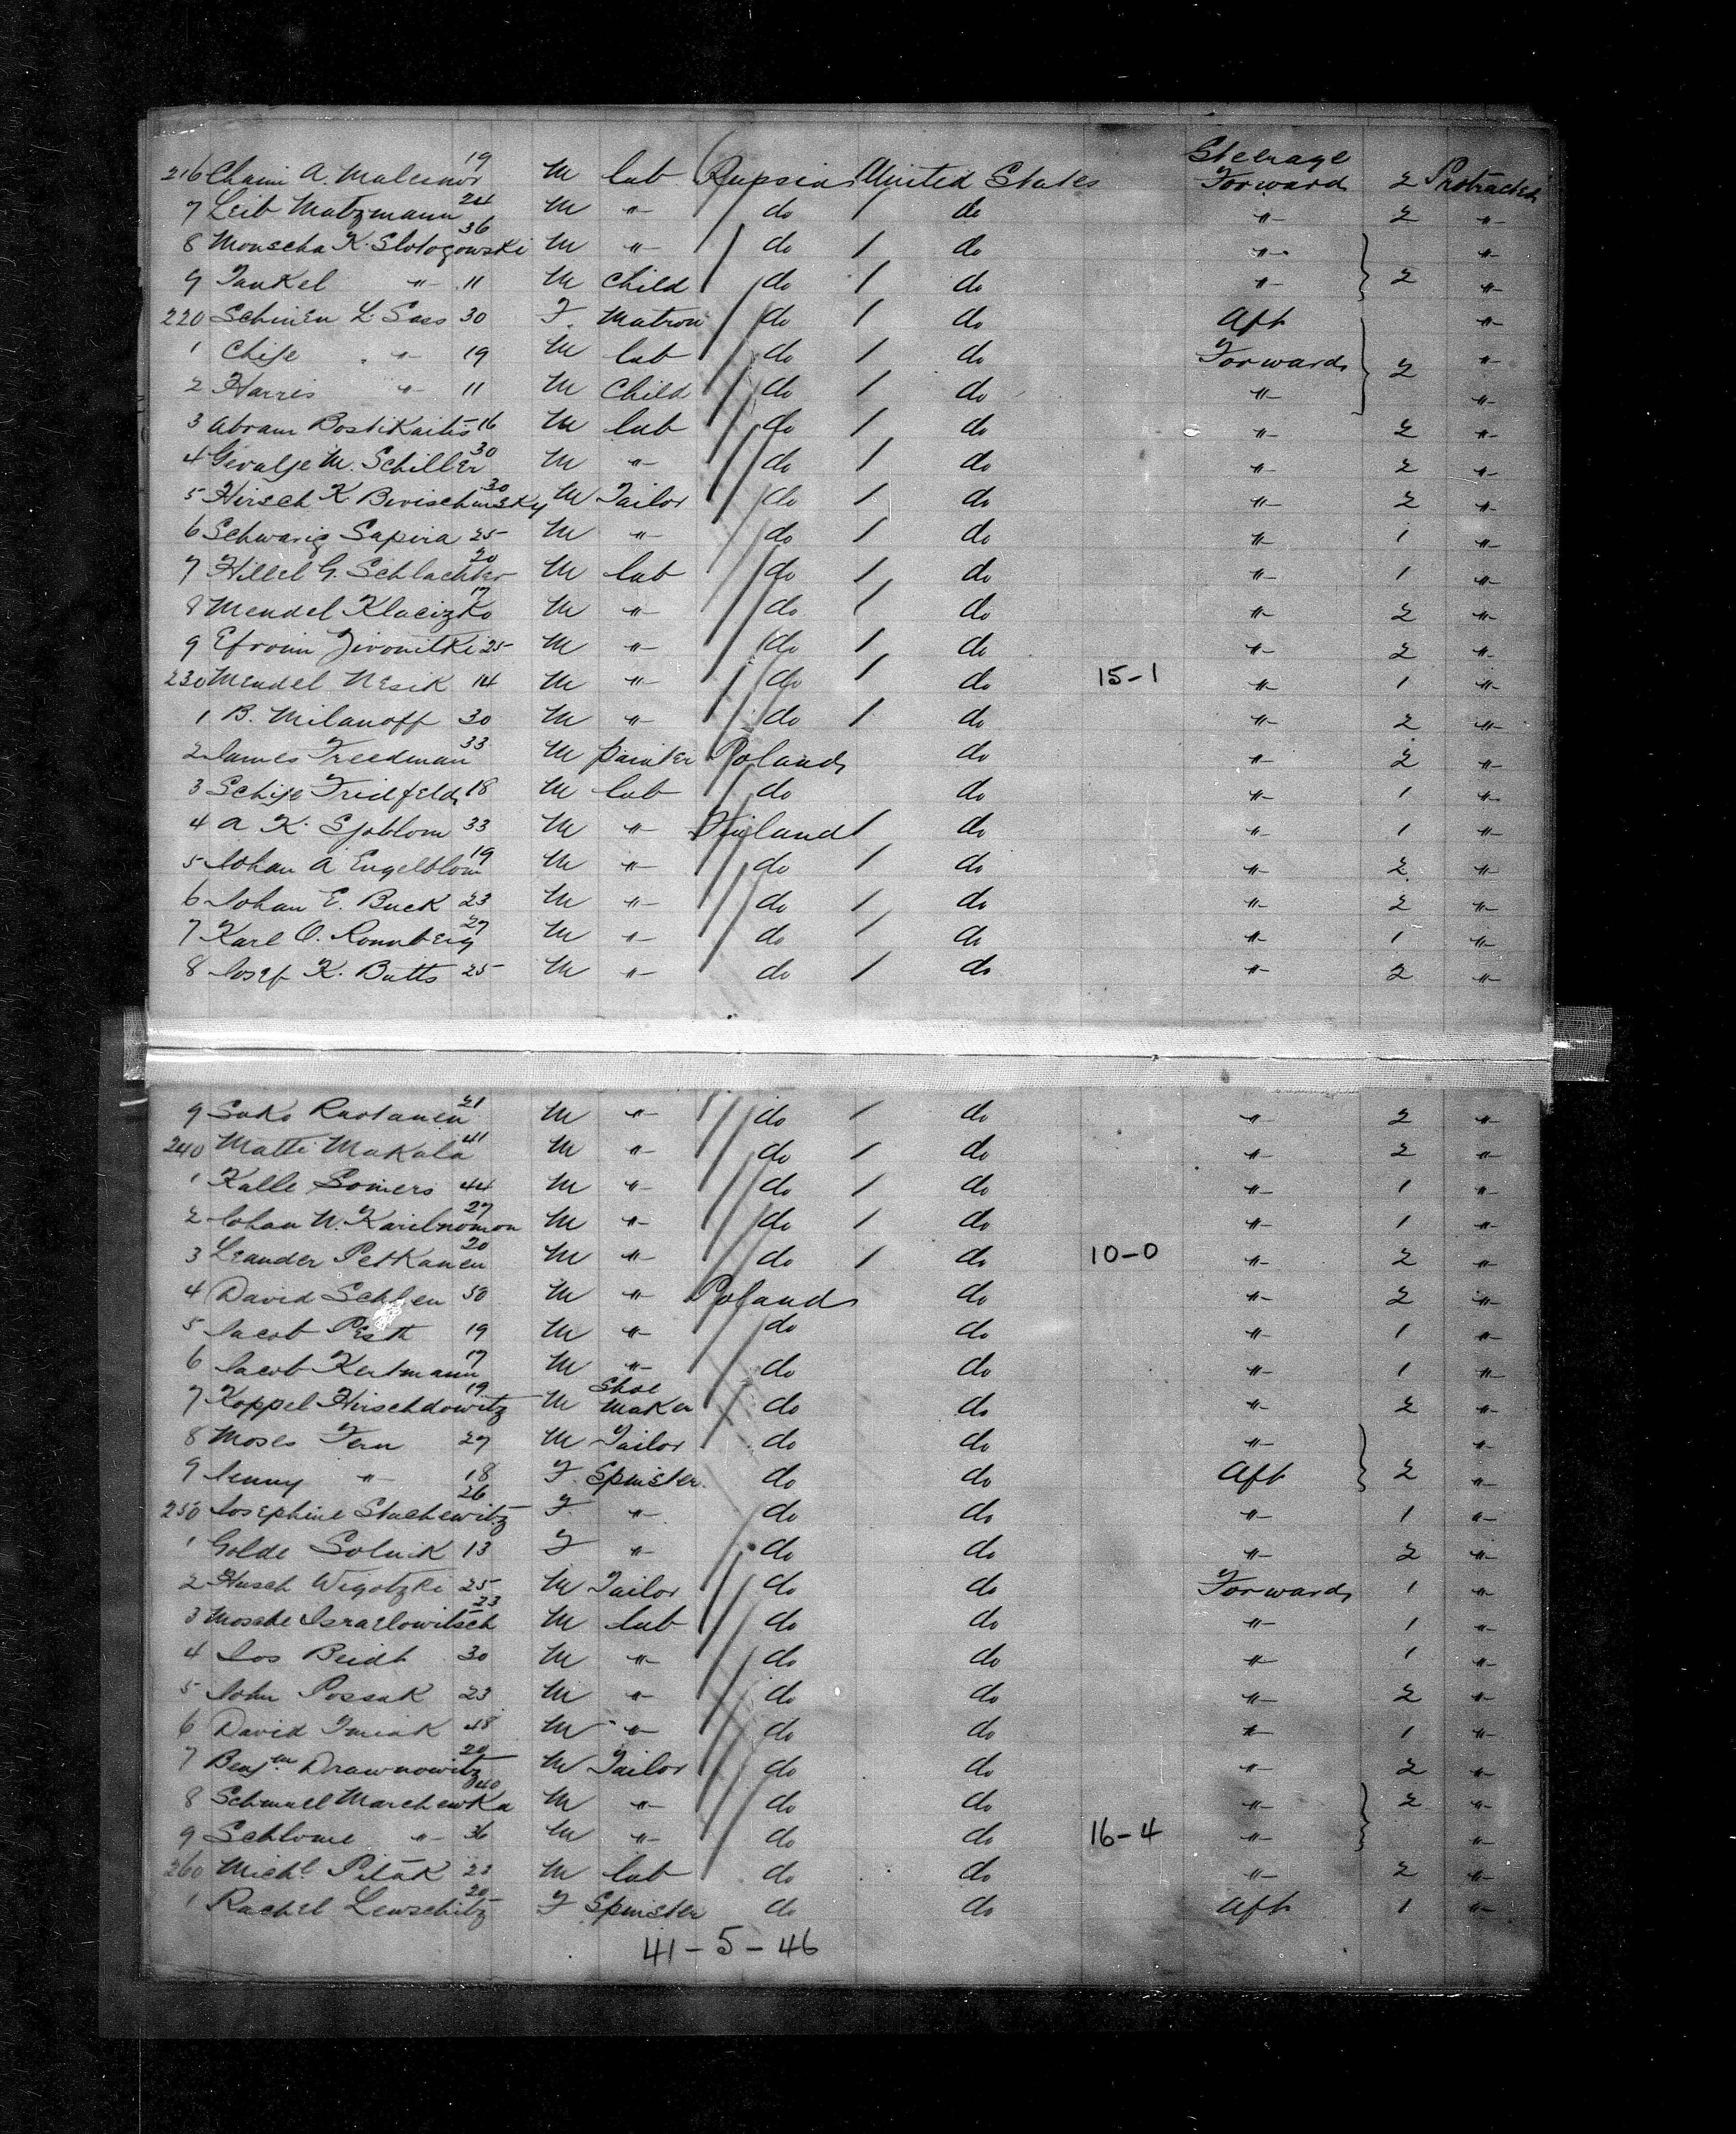 Steerage
216 Chaim A. Malesnor 19 M lab Russia United States Forward 2 Protracted
7 Leib Matzmann 24 M " do do " 2 "
8 Monscha K. Slotogowski 36 M " do do " "
9 Jankel " 11 M Child do do " 2 "
220 Schinen L. Sass 30 F. Matron do do Aft "
1 Chife " 19 M lab do do Forward 2 "
2 Harris " 11 M Child do do " "
3 Abram Bostikaitis 16 M lab do do " 2 "
4 M. Schiller 30 M " do do " 2 "
5 Hirsch K 30 M Tailor do do " 2 "
6 Schwarig Sapira 25 M " do do " 1 "
7 Hillel G. Schlachter 20 M lab do do " 1 "
8 Mendel Klacizko 17 M " do do " 2 "
9 Efroim 25 M " do do " 2 "
230 Mendel Nesik 14 M " do do 15-1 " 1 "
1 B. Milanoff 30 M " do do " 2 "
2 James Freedman 33 M painter Poland do " 2 "
3 Schije Fridfeld 18 M lab do do " 1 "
4 A K. Sjoblom 33 M " Finland do " 1 "
5 Johan A Engelblom 19 M " do do " 2 "
6 Johan E. Buck 23 M " do do " 2 "
7 Karl O. Ronnberg 27 M " do do " 1 "
8 Josef K. Butts 25 M " do do " 2 "
9 Sako Rastanen 21 M " do do " 2 "
240 Matti Makala 41 M " do do " 2 "
1 Kalle Somers 44 M " do do " 1 "
2 Johan W. 27 M " do do " 1 "
3 Leander Petkanen 20 M " do do 10-0 " 2 "
4 David 50 M " Poland do " 2 "
5 Jacob 19 M " do do " 1 "
6 Jacob Kertmann 17 M " do do " 1 "
7 Koppel Hirschdowitz 19 M Shoe Maker do do " 2 "
8 Moses Fern 27 M Tailor do do " "
9 Jenny " 18 F. Spinster do do Aft 2 "
250 Josephine Stachewitz 26 F. " do do " 1 "
1 Golde Solnik 13 F " do do " 2 "
2 Hirsch Wigotzki 25 M Tailor do do Forward 1 "
3 Mosche Israelowitsch 23 M lab do do " 1 "
4 Jos Beidt 30 M " do do " 1 "
5 John Possak 23 M " do do " 2 "
6 David 48 M " do do " 1 "
7 Benjn. Drawnowitz 20 M Tailor do do " 2 "
8 Schmuel Marchewka 40 M " do do " 2 "
9 Schlome " 36 M " do do 16-4 " "
260 Michl. Pitak 22 M lab do do " 2 "
1 Rachel Lewschitz 20 F Spinster do do Aft 1 "
41-5-46